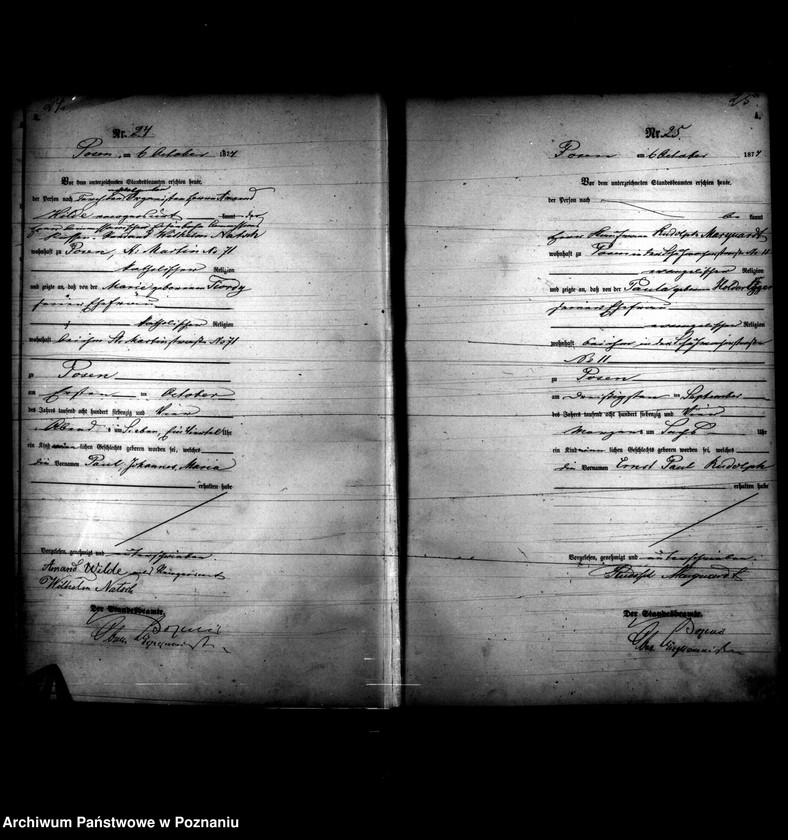 24.
A.
Nr. 24
Posen, am 6 October 1874
Vor dem unterzeichneten Standesbeamten erschien heute,
der Person nach durch den Organisten Herrn Amand
Wilde anerkannt, kannt, der
Wilhelm Natsch
wohnhaft zu Posen, St. Martin No 71
katholischer Religion
und zeigte an, daß von der Marie geborenen
seiner Ehefrau
katholischer Religion
wohnhaft bei ihm St. Martinstrasse No 71
zu Posen
am Ersten October
des Jahres tausend acht hundert siebenzig und Vier
Abend um Sieben, Ein Viertel Uhr
ein Kind männlichen Geschlechts geboren worden sei, welches
die Vornamen Paul Johannes Maria
erhalten habe
Vorgelesen, genehmigt und unterschrieben
Amand Wilde
Wilhelm Natsch
Der Standesbeamte,
25
A.
Nr. 25.
Posen am 6 October 1874
Vor dem unterzeichneten Standesbeamten erschien heute,
der Person nach
be kannt
Herr Kaufmann Rudolph Marquardt
wohnhaft zu Posen in der Schützenstrasse No 11
evangelischer Religion
und zeigte an, daß von der Paula geborenen
seiner Ehefrau
evangelischer Religion
wohnhaft bei ihm in der Schützenstrasse
No 11
zu Posen
am Dreißigsten September
des Jahres tausend acht hundert siebenzig und Vier
Morgens um Sechs Uhr
ein Kind männlichen Geschlechts geboren worden sei, welches
die Vornamen Ernst Paul Rudolph
erhalten habe
Vorgelesen, genehmigt und unterschrieben
Rudolph Marquardt
Der Standesbeamte.
Archiwum Państwowe w Poznaniu